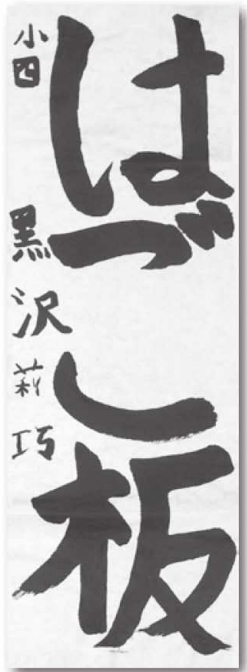 はご板
小四 黒沢莉巧